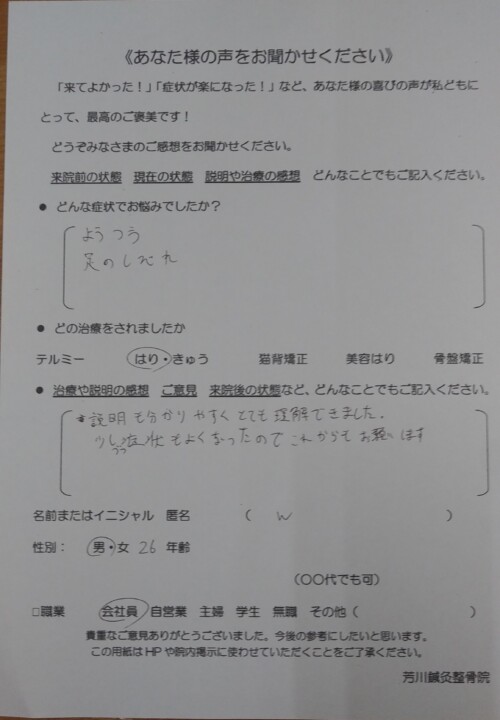 《あなた様の声をお聞かせください》
「来てよかった！」「症状が楽になった！」など、あなた様の喜びの声が私どもに
とって、最高のご褒美です！
どうぞみなさまのご感想をお聞かせください。
来院前の状態　現在の状態　説明や治療の感想　どんなことでもご記入ください。
● どんな症状でお悩みでしたか？
ようつう
足のしびれ
● どの治療をされましたか
テルミー　はり・きゅう　猫背矯正　美容はり　骨盤矯正
● 治療や説明の感想　ご意見　来院後の状態など、どんなことでもご記入ください。
説明も分かりやすくとても理解できました。
少しづつ症状もよくなったのでこれからもお願いします
名前またはイニシャル　匿名　（　W　）
性別：　男・女　26　年齢
（〇〇代でも可）
□職業　会社員　自営業　主婦　学生　無職　その他（　）
貴重なご意見ありがとうございました。今後の参考にしたいと思います。
この用紙はHPや院内掲示に使わせていただくことをご了承ください。
芳川鍼灸整骨院